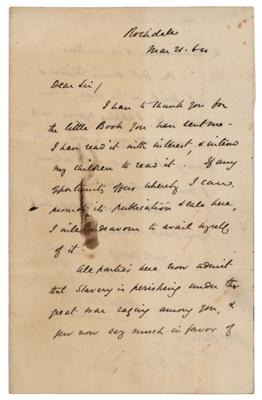 Rochdale
Mar 21. 64
Dear Sir/
I have to thank you for
the little Book you have sent me -
I have read it with interest, & intend
my children to read it. If any
opportunity offers whereby I can
promote its publication & sale here,
I will endeavour to avail myself
of it.
All parties here now admit
that Slavery is perishing under the
great war raging among you, &
few now say much in favor of